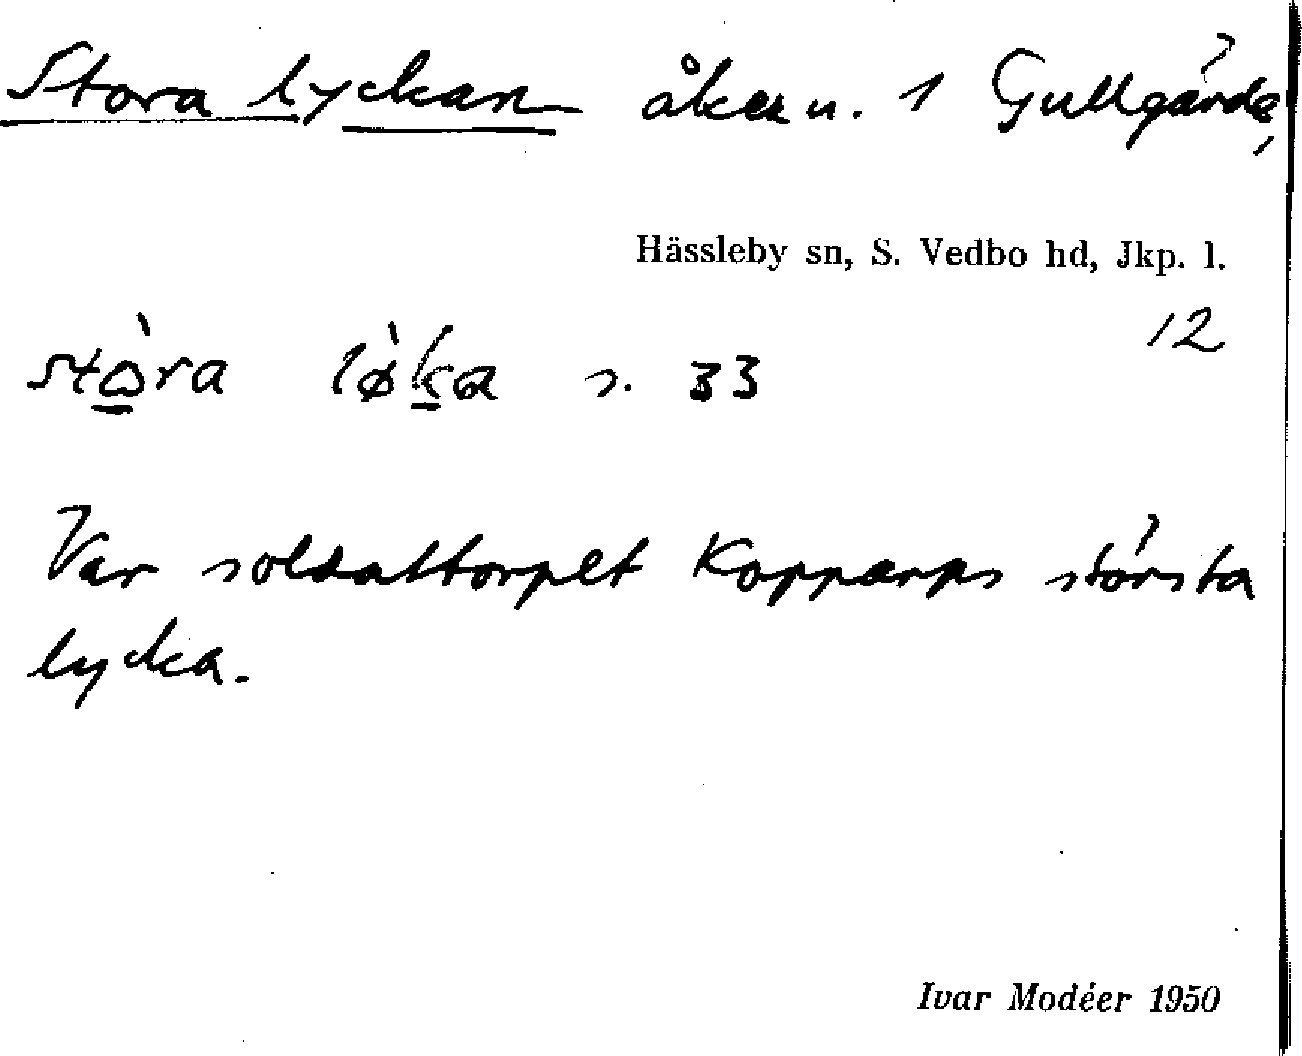 Stora lyckan åker u. 1 Gullgärde,
Hässleby sn, S. Vedbo hd, Jkp. l.
12
stò̲ra lø̀k̲a s. 33
Var soldattorpet Kopparps största
lycka.
Ivar Modéer 1950